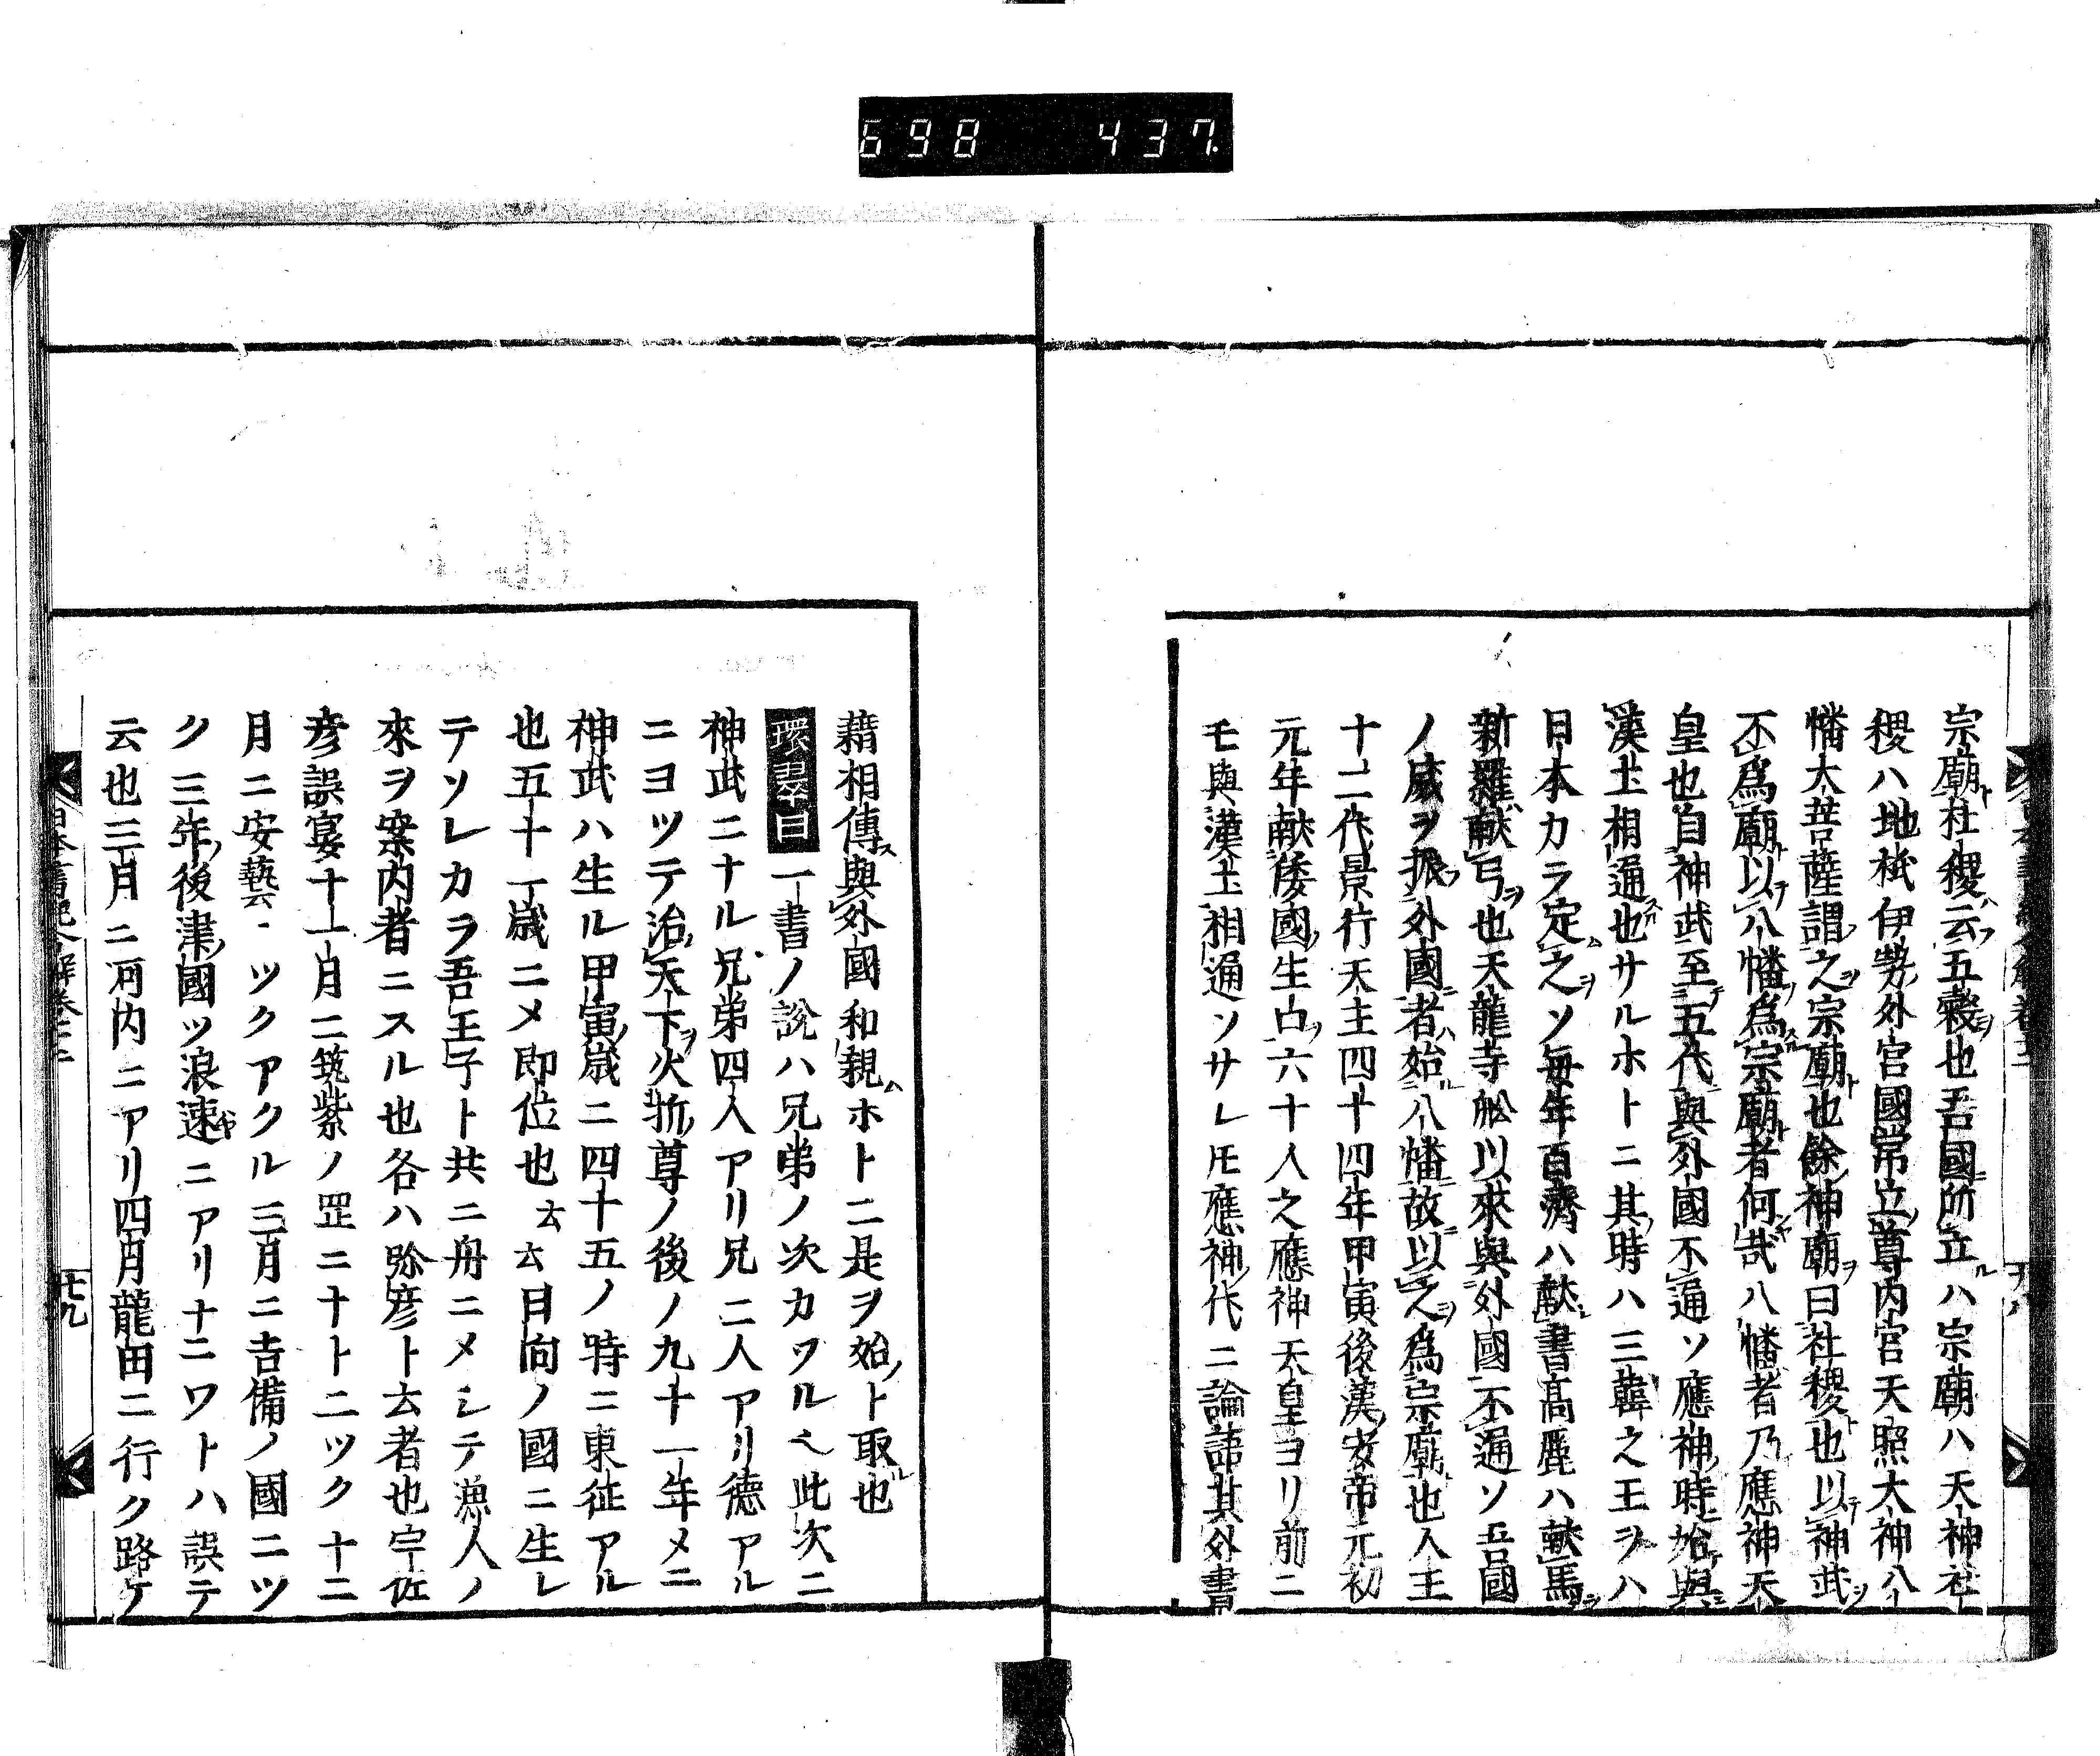 698 437
宗廟社稷云五穀也吾國所立ハ宗廟ハ天神社
稷ハ地祇伊勢外宮國常立尊内宮天照大神八
幡大菩薩謂之宗廟也餘神廟曰社稷也以神武
不爲廟以八幡爲宗廟者何哉八幡者乃應神天
皇也自神武至五代與外國不通ソ應神時始與
漢土相通也サルホトニ其時ハ三韓之王ヲハ
日本カラ定之ソ毎年百濟ハ献書髙麗ハ献馬
新羅献弓也天龍寺舩以來與外國不通ソ吾國
ノ威ヲ振外國者始八幡故以之爲宗廟也人王
十二代景行天主四十四年甲寅後漢安帝元初
元年献倭國生口六十人之應神天皇ヨリ前ニ
モ與漢土相通ソサレ𪜈應神代ニ論語其外書
籍相傳與外國和親ホトニ是ヲ始ト取也
環翠曰一書ノ説ハ兄弟ノ次カワル也此次ニ
神武ニナル兄弟四人アリ兄二人アリ德アル
ニヨツテ治天下火折尊ノ後ノ九十一年メニ
神武ハ生ル甲寅歳ニ四十五ノ時ニ東征アル
也五十一歳ニメ即位也云云日向ノ國ニ生レ
テソレカラ吾王子ト共ニ舟ニメシテ漁人ノ
來ヲ案内者ニスル也名ハ珍彦ト云者也宇佐
彦誤宴十一月ニ筑紫ノ罡ニ十トニツク十二
月ニ安藝ニツクアクル三月ニ吉備ノ國ニツ
ク三年後津國ツ浪速ニアリ十ニワトハ誤テ
云也三月ニ河内ニアリ四月龍田ニ行ク路ケ
日本書紀
十九